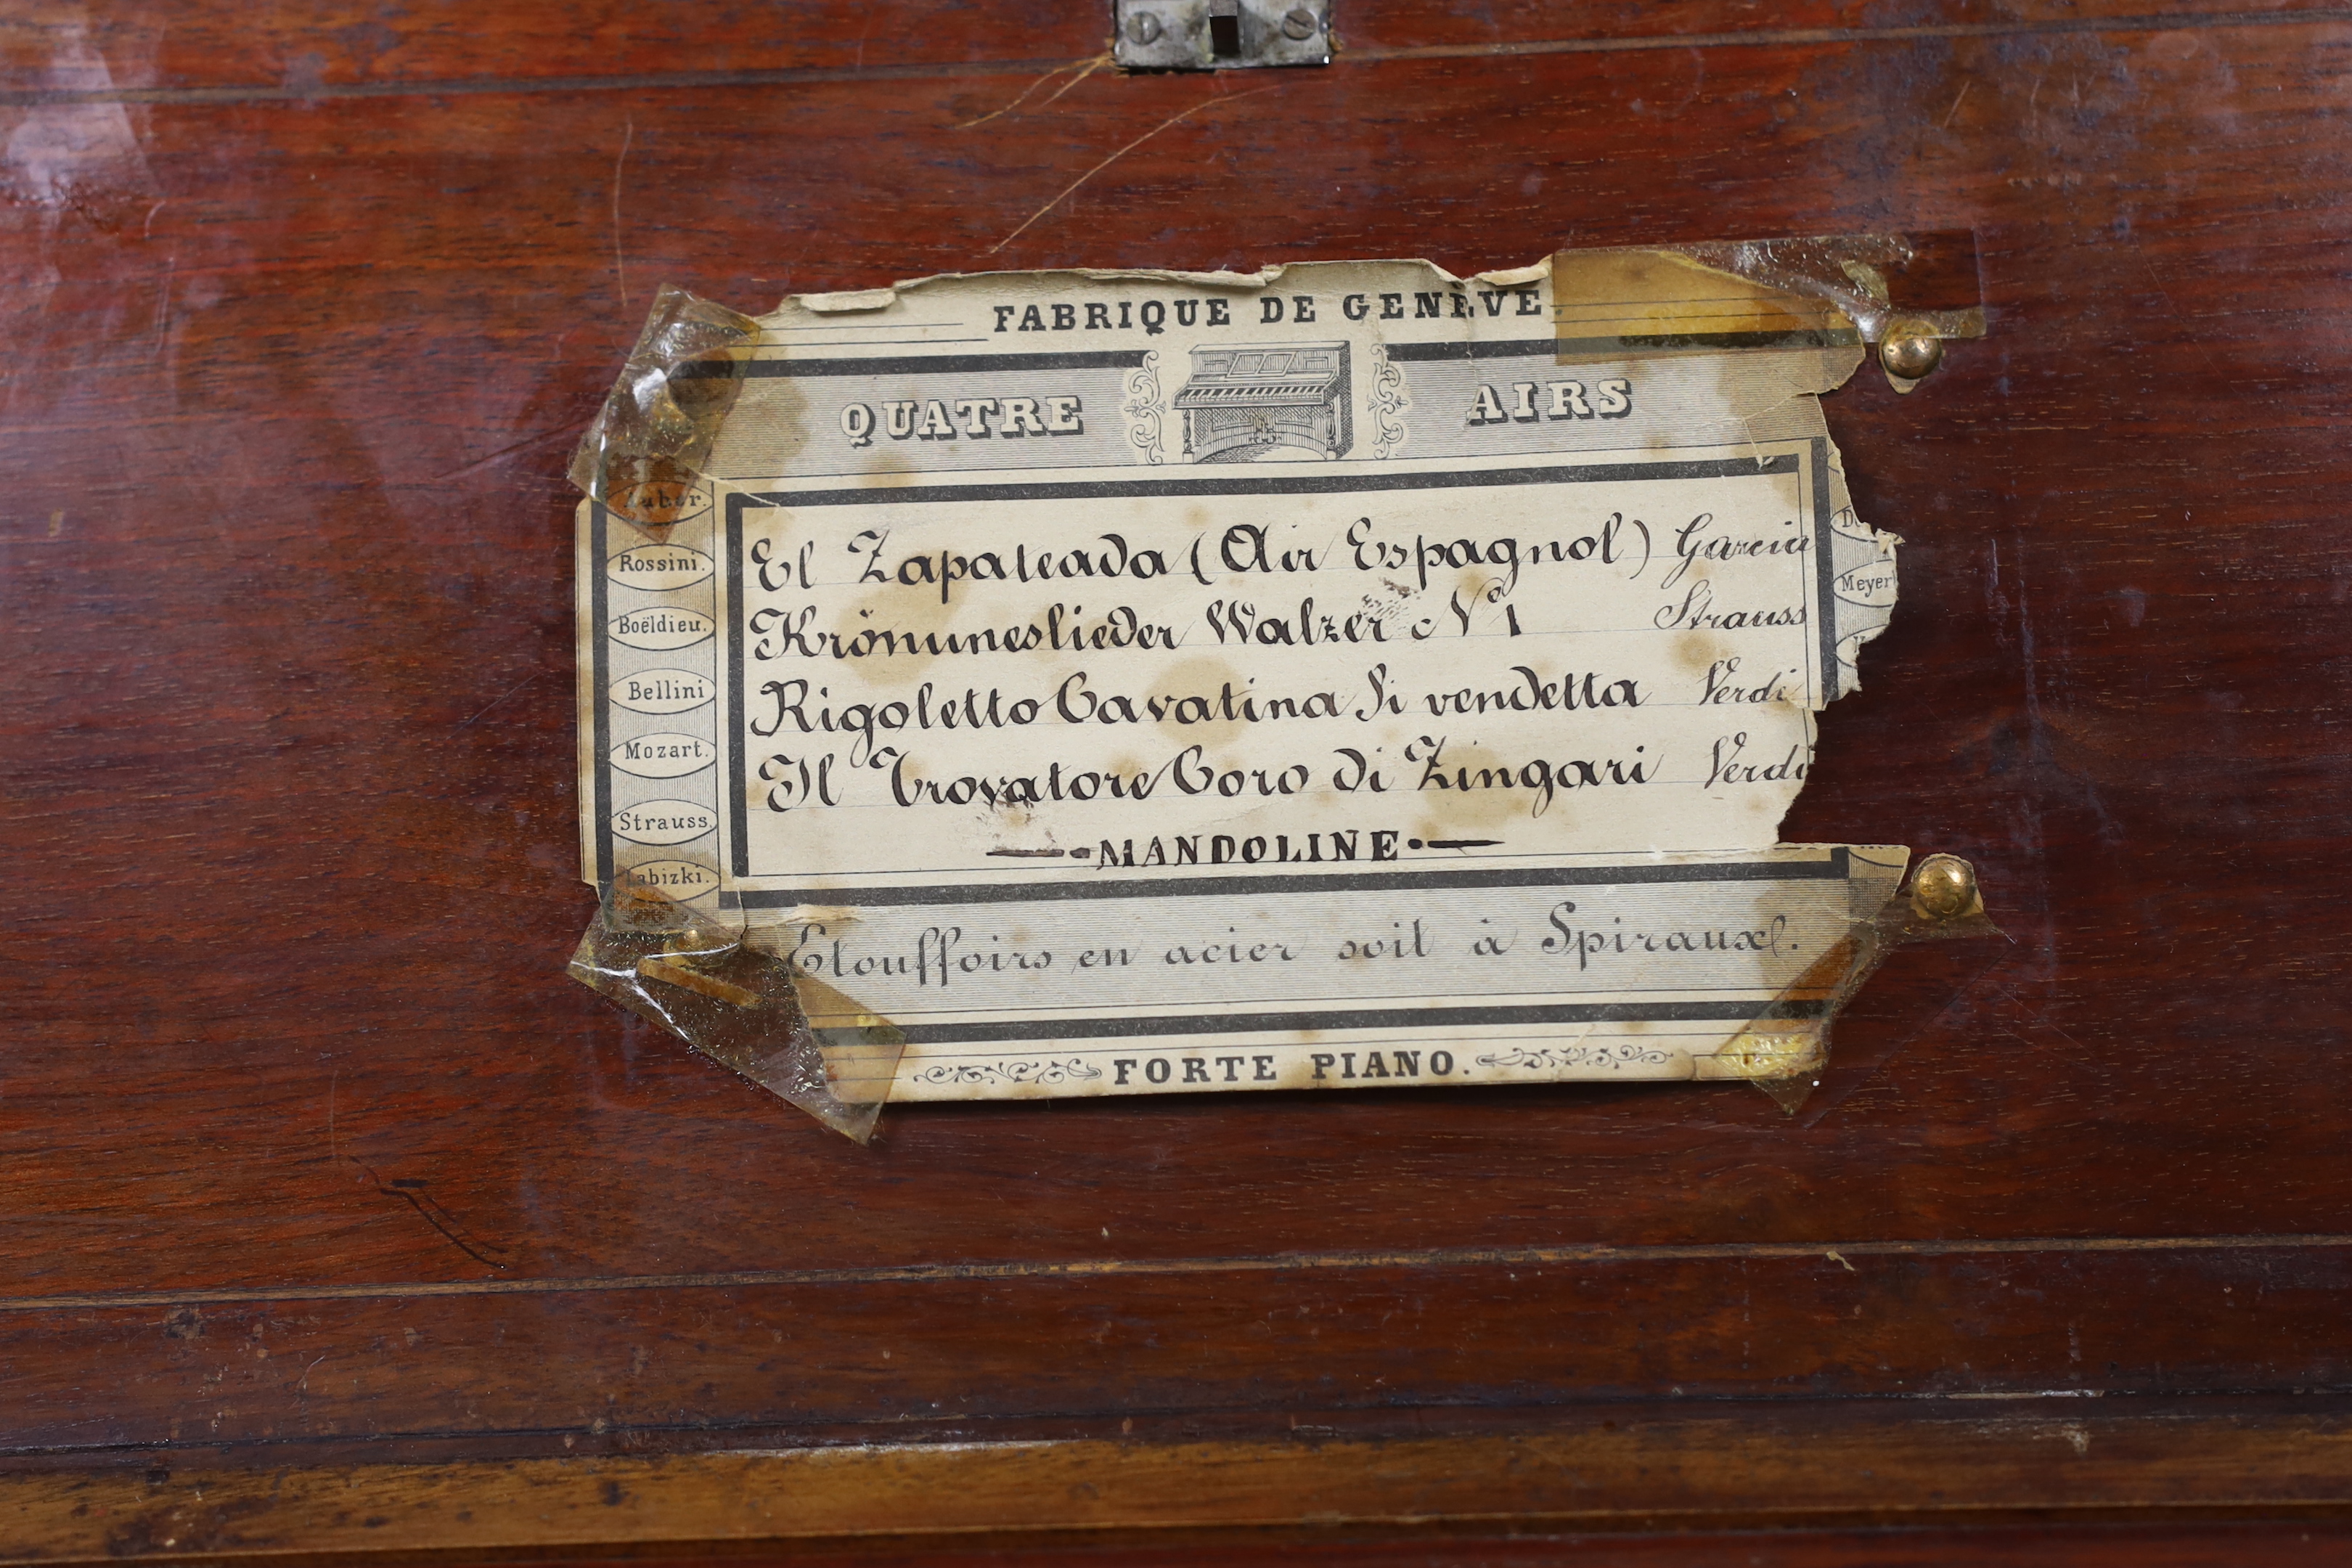 FABRIQUE DE GENEVE.
QUATRE AIRS
Auber.
Rossini.
Boëldieu.
Bellini
Mozart.
Strauss.
Labizki.
El Zapateada (Air Espagnol) Garcia
Krönuneslieder Walzer No 1 Strauss
Rigoletto Cavatina Si vendetta Verdi
Il Trovatore Coro di Zingari Verdi
MANDOLINE
Meyer
Etouffoirs en acier soit à Spiraux.
FORTE PIANO.